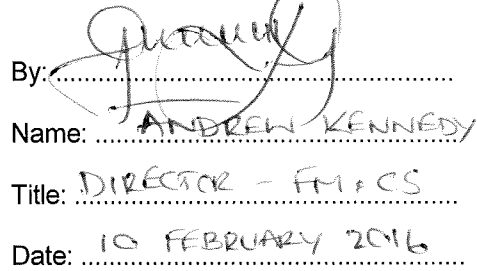 By:
Name: ANDREW KENNEDY
Title: DIRECTOR - FM & CS
Date: 10 FEBRUARY 2016